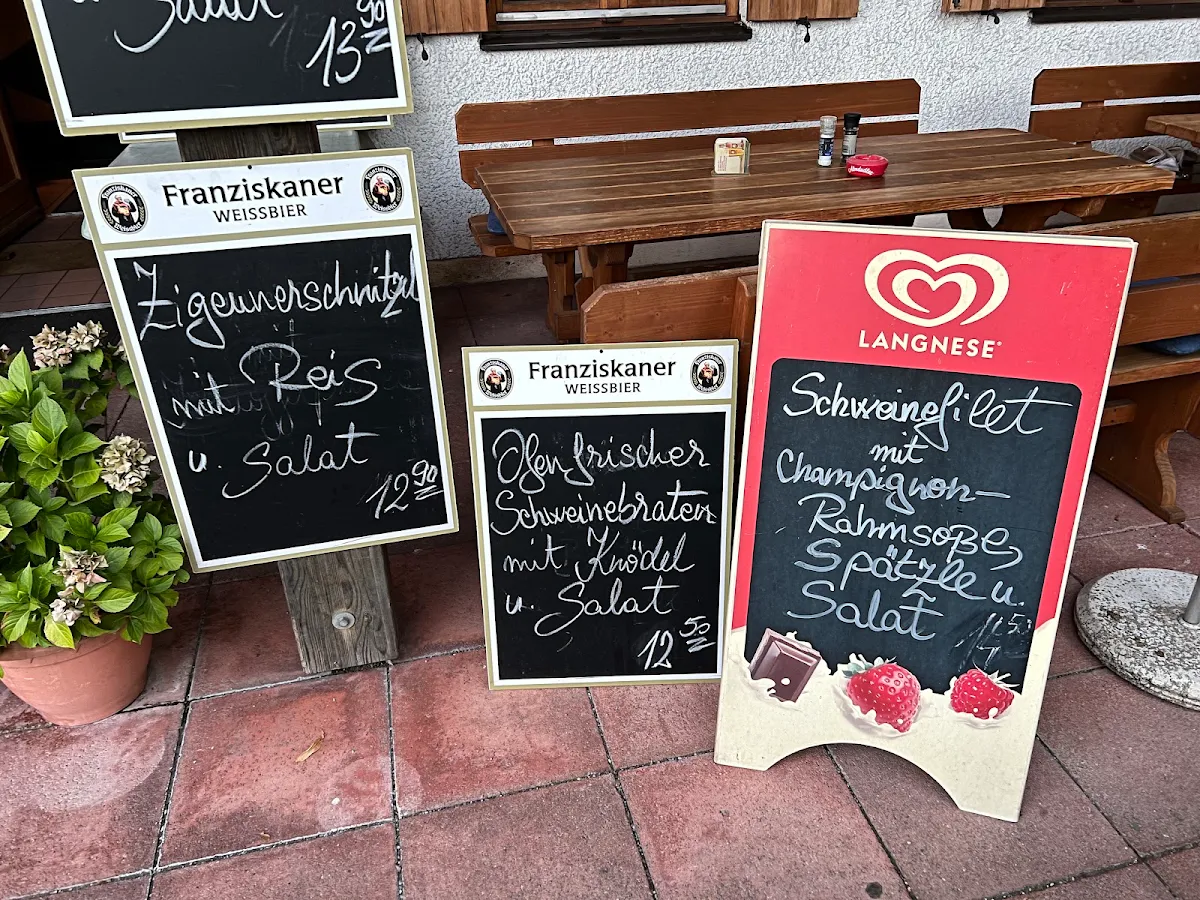 Salat
13 90
Franziskaner
WEISSBIER
Zigeunerschnitzel
mit Reis
u. Salat
12 90
Franziskaner
WEISSBIER
Ofenfrischer
Schweinebraten
mit Knödel
u. Salat
12 50
LANGNESE
Schweinefilet
mit
Champignon-
Rahmsoße,
Spätzle u.
Salat